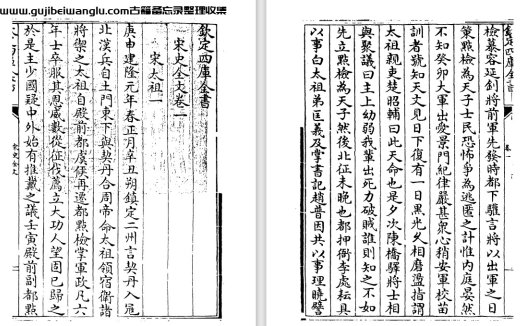 www.gujibeiwanglu.com古籍备忘录整理收集
欽定四庫全書
宋史全文卷一
宋太祖一
庚申建隆元年春正月辛丑朔鎮定二州言契丹入冦
北漢兵自土門東下與契丹合周帝命太祖領宿衛諸
將禦之太祖自殿前都虞候再遷都點檢掌軍政凡六
年士卒服其恩威數從征伐薦立大功人望固已歸之
於是主少國疑中外始有推戴之議壬寅殿前副都點
檢慕容延釗將前軍先發時都下讙言將以出軍之日
策點檢為天子士民恐怖爭為逃匿之計惟内庭晏然
不知癸卯大軍出愛景門紀律嚴甚衆心稍安軍校苗
訓者號知天文見日下復有一日黑光久相磨盪指謂
太祖親吏楚昭輔曰此天命也是夕次陳橋驛將士相
與聚議曰主上幼弱我輩出死力破賊誰則知之不如
先立點檢為天子然後北征未晚也都押衙李處耘具
以事白太祖弟匡義及掌書記趙普因共以事理曉譬